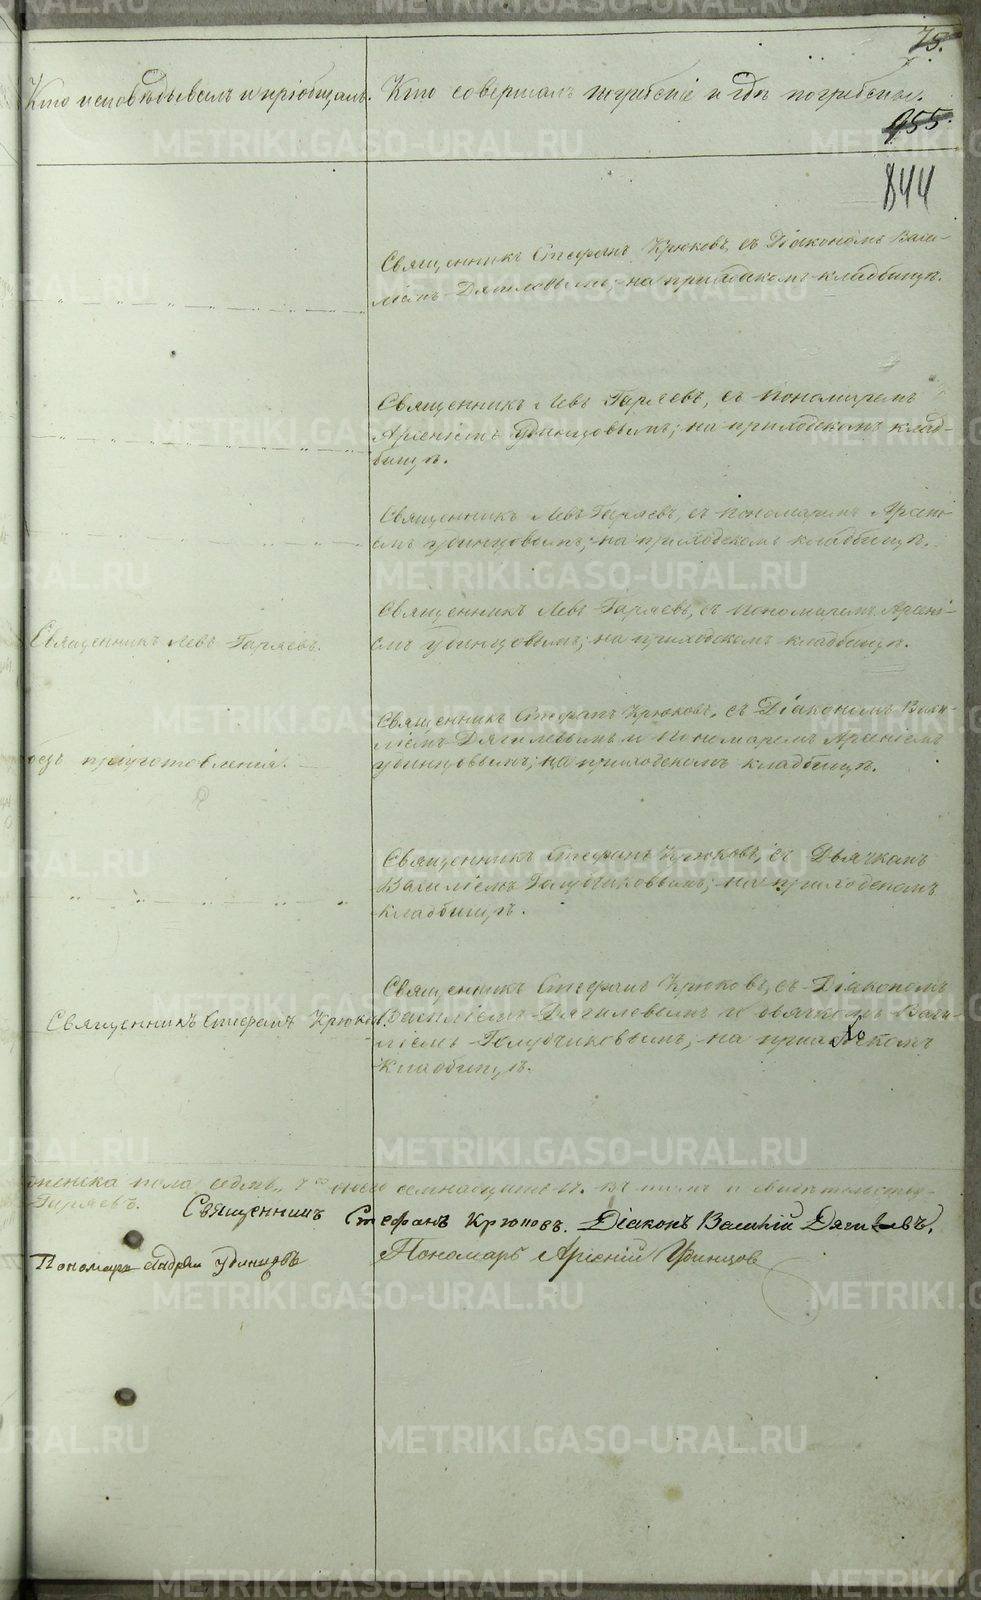 75.
Кто исповѣдывалъ и пріобщалъ.
Кто совершалъ погребеніе и гдѣ погребены.
955.
844
Священникъ Стефанъ Крюковъ, съ Діакономъ Васи-
ліемъ Дягилевымъ; на приходскомъ кладбищѣ.
Священникъ Левъ Гаряевъ, съ пономаремъ
Арсеніемъ Удинцовымъ; на приходскомъ клад-
бищѣ.
Священникъ Левъ Гаряевъ, съ пономаремъ Арсені-
емъ Удинцовымъ; на приходскомъ кладбищѣ.
Священникъ Левъ Гаряевъ.
Священникъ Левъ Гаряевъ, съ пономаремъ Арсені-
емъ Удинцовымъ; на приходскомъ кладбищѣ.
безъ приуготовленія.
Священникъ Стефанъ Крюковъ, съ Діакономъ Васи-
ліемъ Дягилевымъ и пономаремъ Арсеніемъ
Удинцовымъ; на приходскомъ кладбищѣ.
Священникъ Стефанъ Крюковъ, съ Дьячкомъ
Василіемъ Голубчиковымъ; на приходскомъ
кладбищѣ.
Священникъ Стефанъ Крюковъ.
Священникъ Стефанъ Крюковъ, съ Діакономъ
Василіемъ Дягилевымъ и дьячкомъ Васи-
ліемъ Голубчиковымъ, на приходскомъ
кладбищѣ.
женска пола седмь, а обоего семнадцать 17. Въ томъ и свидѣтельству-
Гаряевъ. Священникъ Стефанъ Крюковъ. Діаконъ Василій Дягилевъ.
Пономарь Андрей Удинцовъ
Пономарь Арсеній Удинцов
METRIKI.GASO-URAL.RU